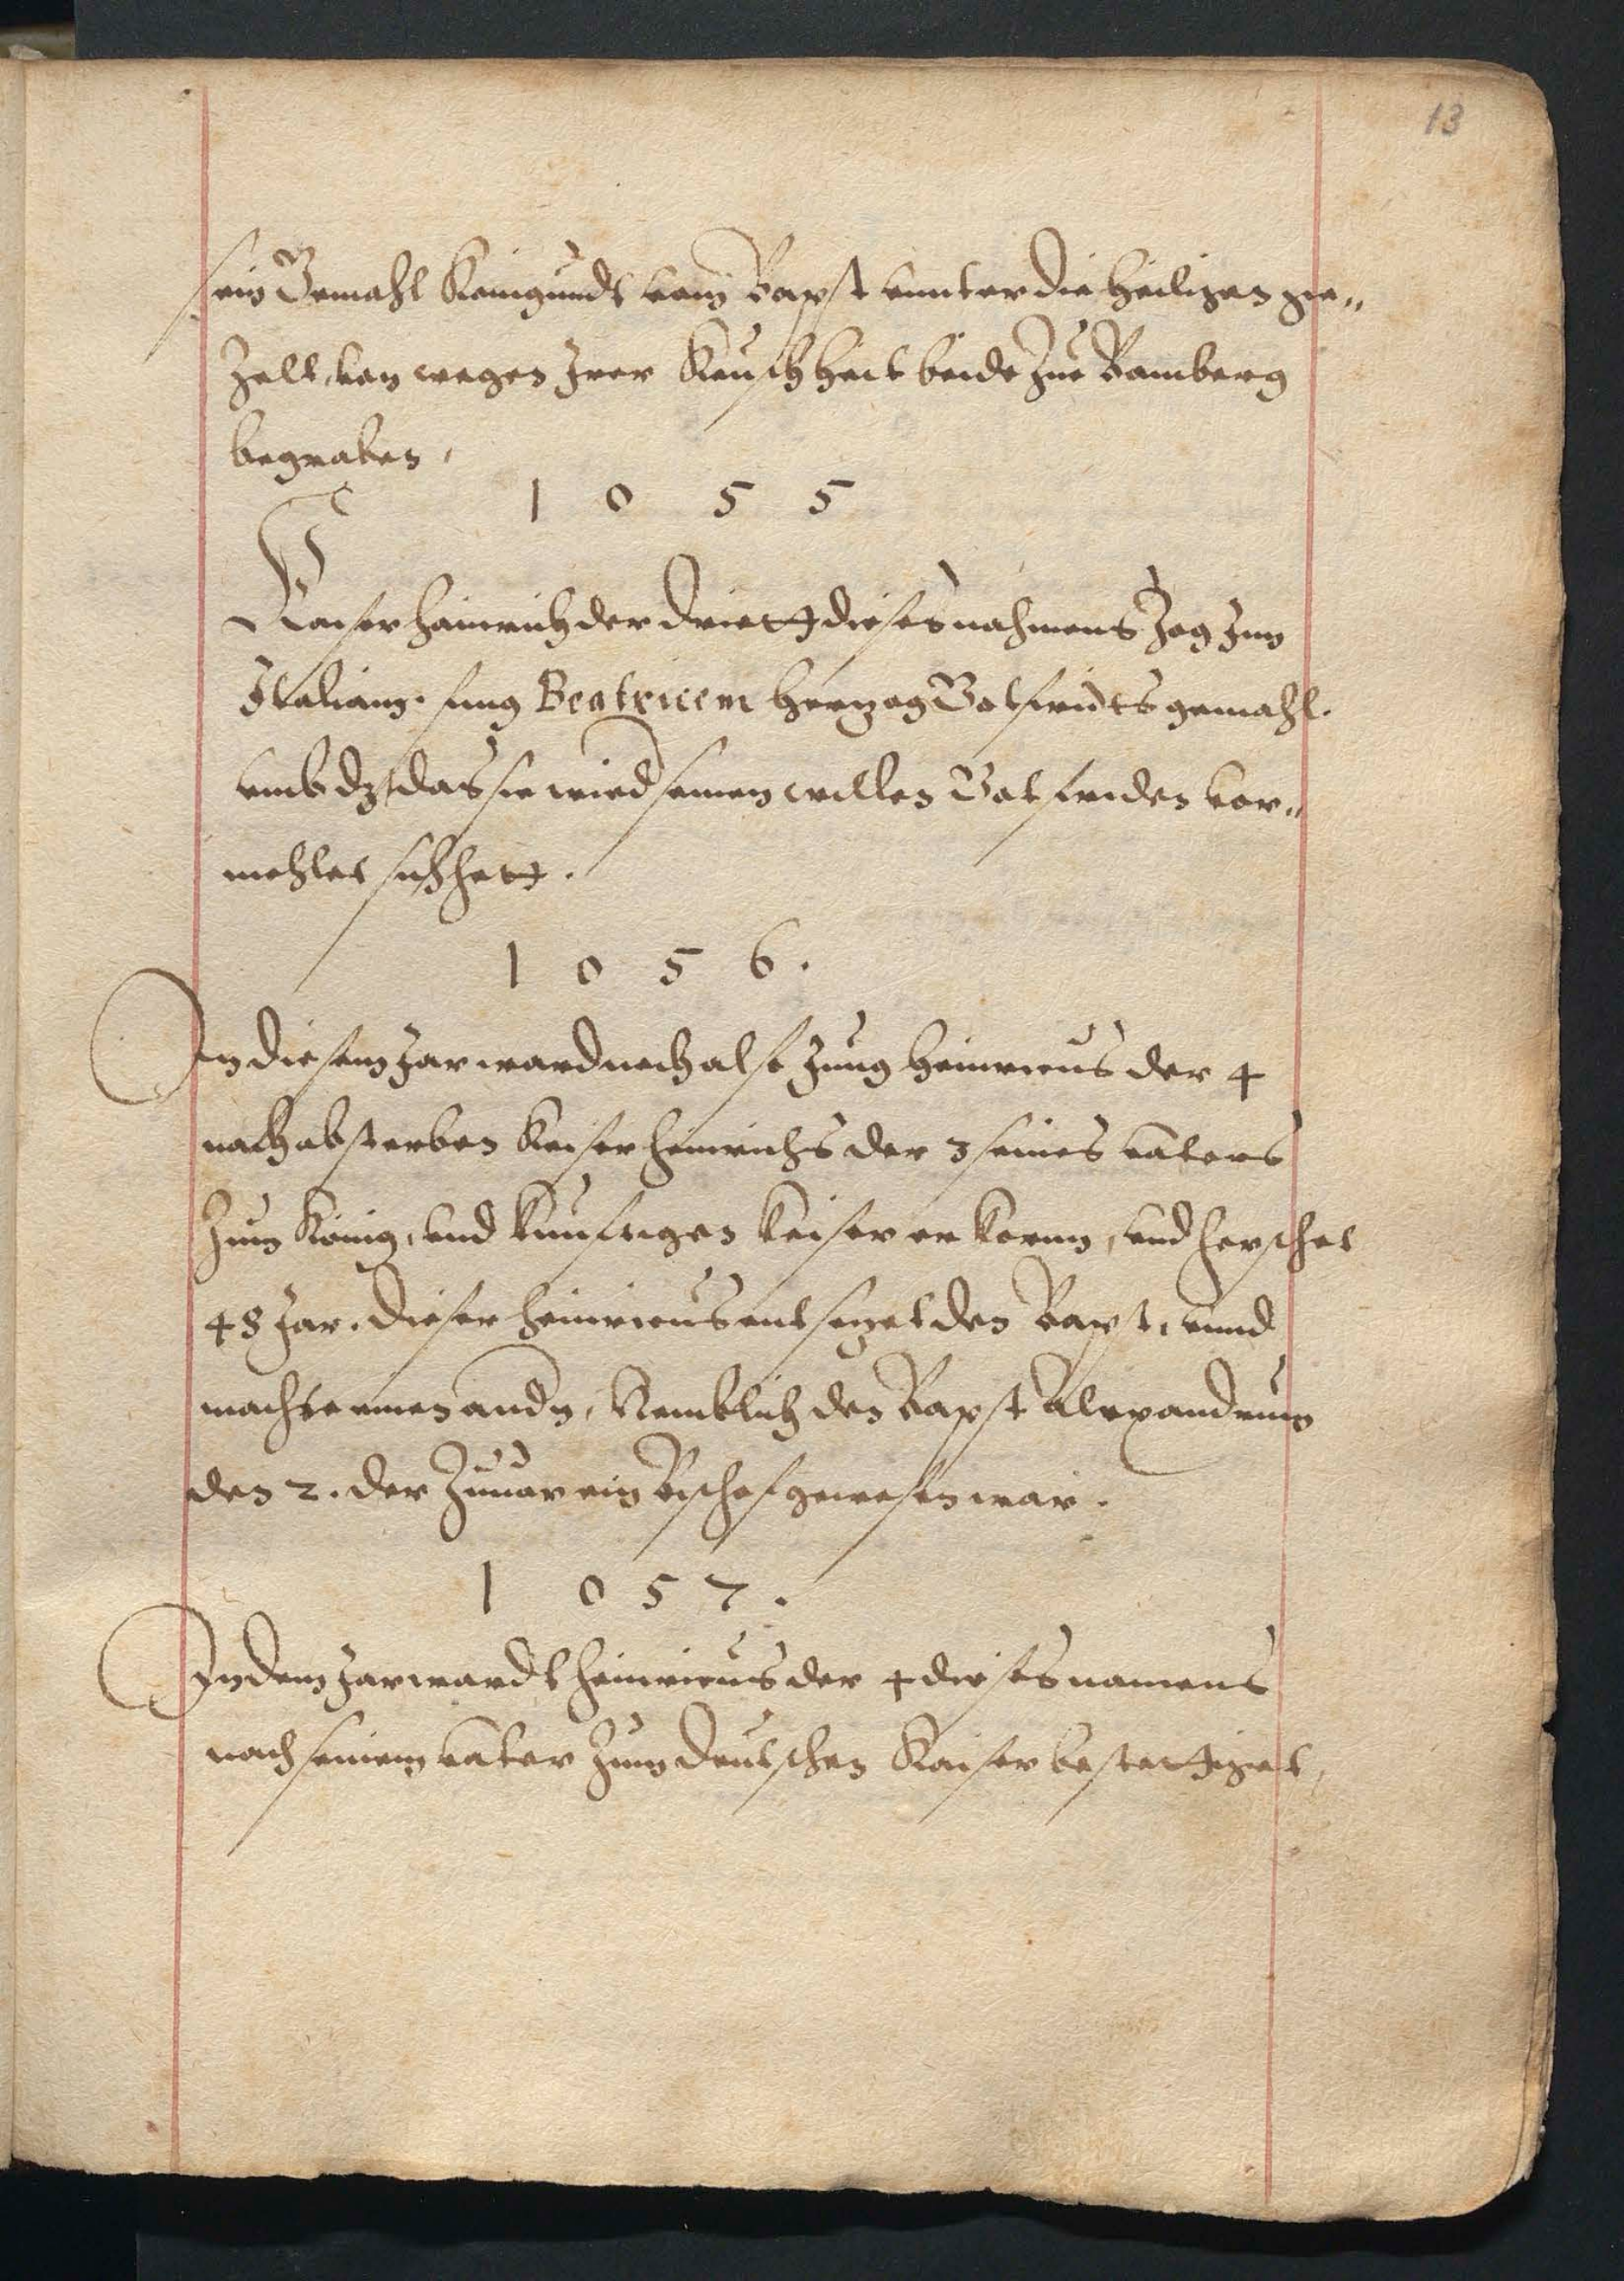 13
sein Gemahl Konigundt vom Bapst vnnter die heiligen ge„
Zelt, von wegen Jrer Keuschheit beide Zue Bamberg
begraben,
1 0 5 5
Kaiser Heinrich der Driette dieses nahmens Zog Jnn
Jtalianz. fing Beatricem Hertzog Gotfridts gemahl.
vmb dz das sie wied seinen willen Gotfriden vor„
mehlet sich hett.
1 0 5 6.
Jn diesem Jar ward noch also Jung Heinricus der 4
nach absterben Keiser Heinrichs der 3 seines vaters
Zum König, vnd kunftigen Keiser erkorn, vnd herschet
48 Jar. Dieser Heinricus entsezet den Bapst, vnnd
machte einen andn, Nemblich den Bapst Alexandrum
den 2. der Zuuor ein Bischof gewesen war.
1 0 5 7.
Jn dem Jar wardt Heinricus der 4 dieses namens
nach seinem vater Zum deutschen Kaiser bestettiget,